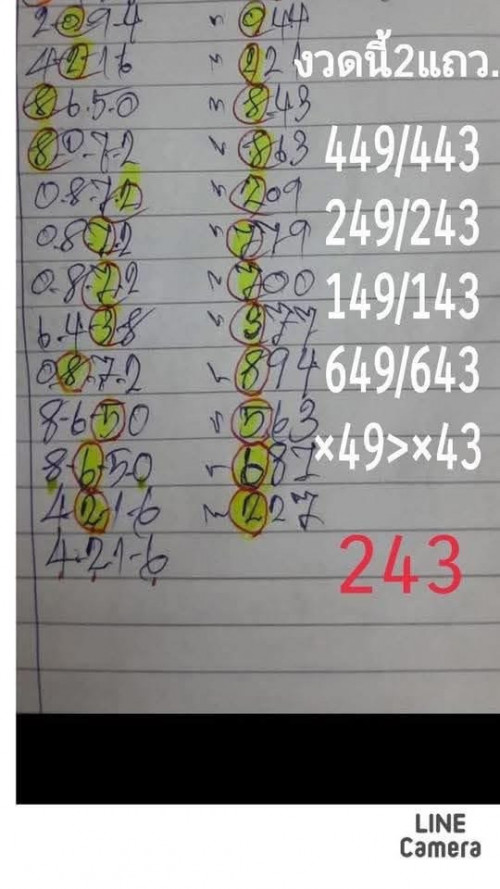 2-0-9-4 " 044
4-2-1-6 " 221 งวดนี้2แถว.
8-6-5-0 " 843
8-0-7-2 " 863 449/443
0-8-7-2 " 209
0-8-7-2 " 779 249/243
0-8-7-2 " 700 149/143
6-4-3-8 " 377
0-8-7-2 " 894 649/643
8-6-5-0 " 563
8-6-5-0 " 687 ×49>×43
4-2-1-6 " 227
4-2-1-6 243
LINE
Camera